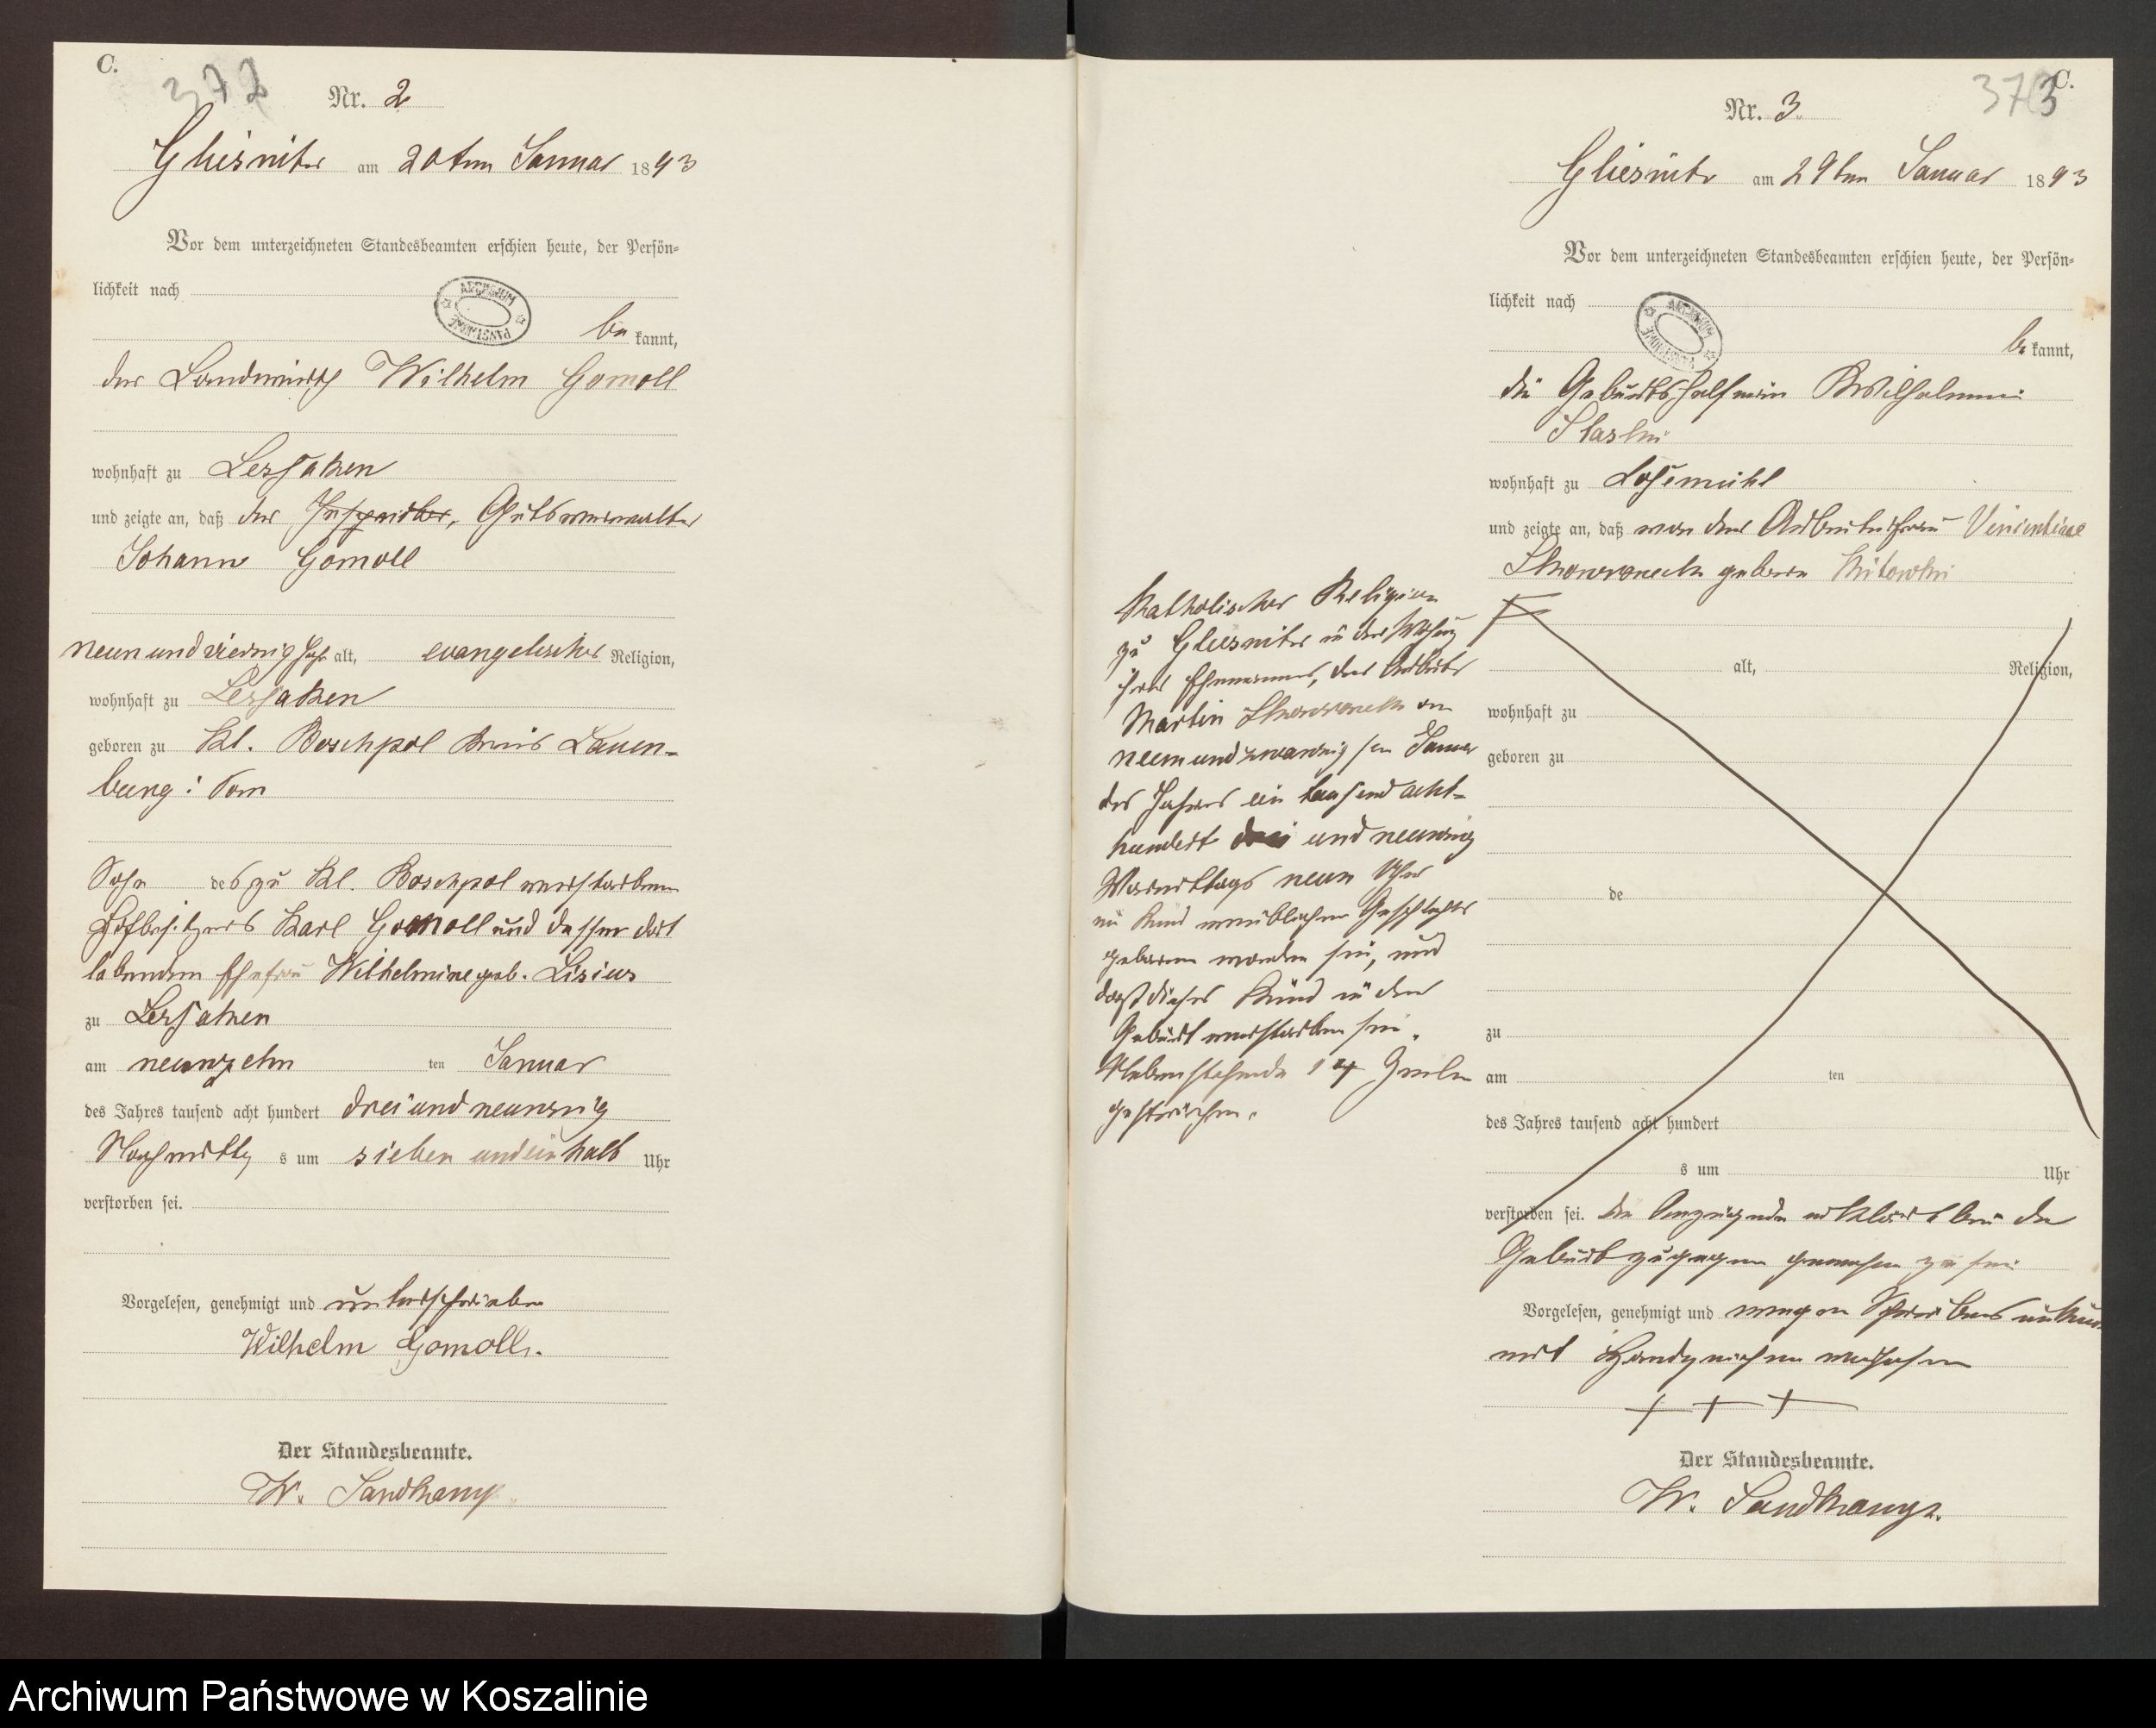 C.
372
Nr. 2
Gliesnitz am 20ten Januar 1893
Vor dem unterzeichneten Standesbeamten erschien heute, der Persön-
lichkeit nach
ARCHIWUM PAŃSTWOWE
be kannt,
der Landwirth Wilhelm Gomoll
wohnhaft zu Lessaken
und zeigte an, daß der Inspector, Gutsverwalter
Johann Gomoll
neunundvierzig Jahr alt, evangelischer Religion,
wohnhaft zu Lessaken
geboren zu Kl. Boschpol Kreis Lauen-
burg i Pom
Sohn des zu Kl. Boschpol verstorbenen
Hofbesitzers Karl Gomoll und dessen dort
lebenden Ehefrau Wilhelmine geb. Lisius
zu Lessaken
am neunzehn ten Januar
des Jahres tausend acht hundert dreiundneunzig
Nachmittag s um sieben undeinhalb Uhr
verstorben sei.
Vorgelesen, genehmigt und unterschrieben
Wilhelm Gomoll.
Der Standesbeamte.
W. Sandkamp
C.
373
Nr. 3.
Gliesnitz am 29ten Januar 1893
Vor dem unterzeichneten Standesbeamten erschien heute, der Persön-
lichkeit nach
ARCHIWUM PAŃSTWOWE
be kannt,
die Geburtshelferin Wilhelmine
wohnhaft zu Lossmühl
und zeigte an, daß von der Arbeiterfrau
Skowroneck geborne
alt, Religion,
wohnhaft zu
geboren zu
de
zu
am ten
des Jahres tausend acht hundert
s um Uhr
verstorben sei. die Anzeigende erklärt bei der
Geburt zugegen gewesen zu sein
Vorgelesen, genehmigt und wegen Schreibens
mit Handzeichen versehen
+ + +
Der Standesbeamte.
W. Sandkamp.
Katholischer Religion
zu Gliesnitz in der Wohnung
ihres Ehemannes, des Arbeiter
Martin Skowroneck am
neunundzwanzigsten Januar
des Jahres ein tausend acht-
hundert drei und neunzig
Vormittags neun Uhr
ein Kind weiblichen Geschlechts
geboren worden sei, und
daß dieses Kind in der
Geburt verstorben sei.
Nebenstehende 14 Zeilen
gestrichen.
Archiwum Państwowe w Koszalinie